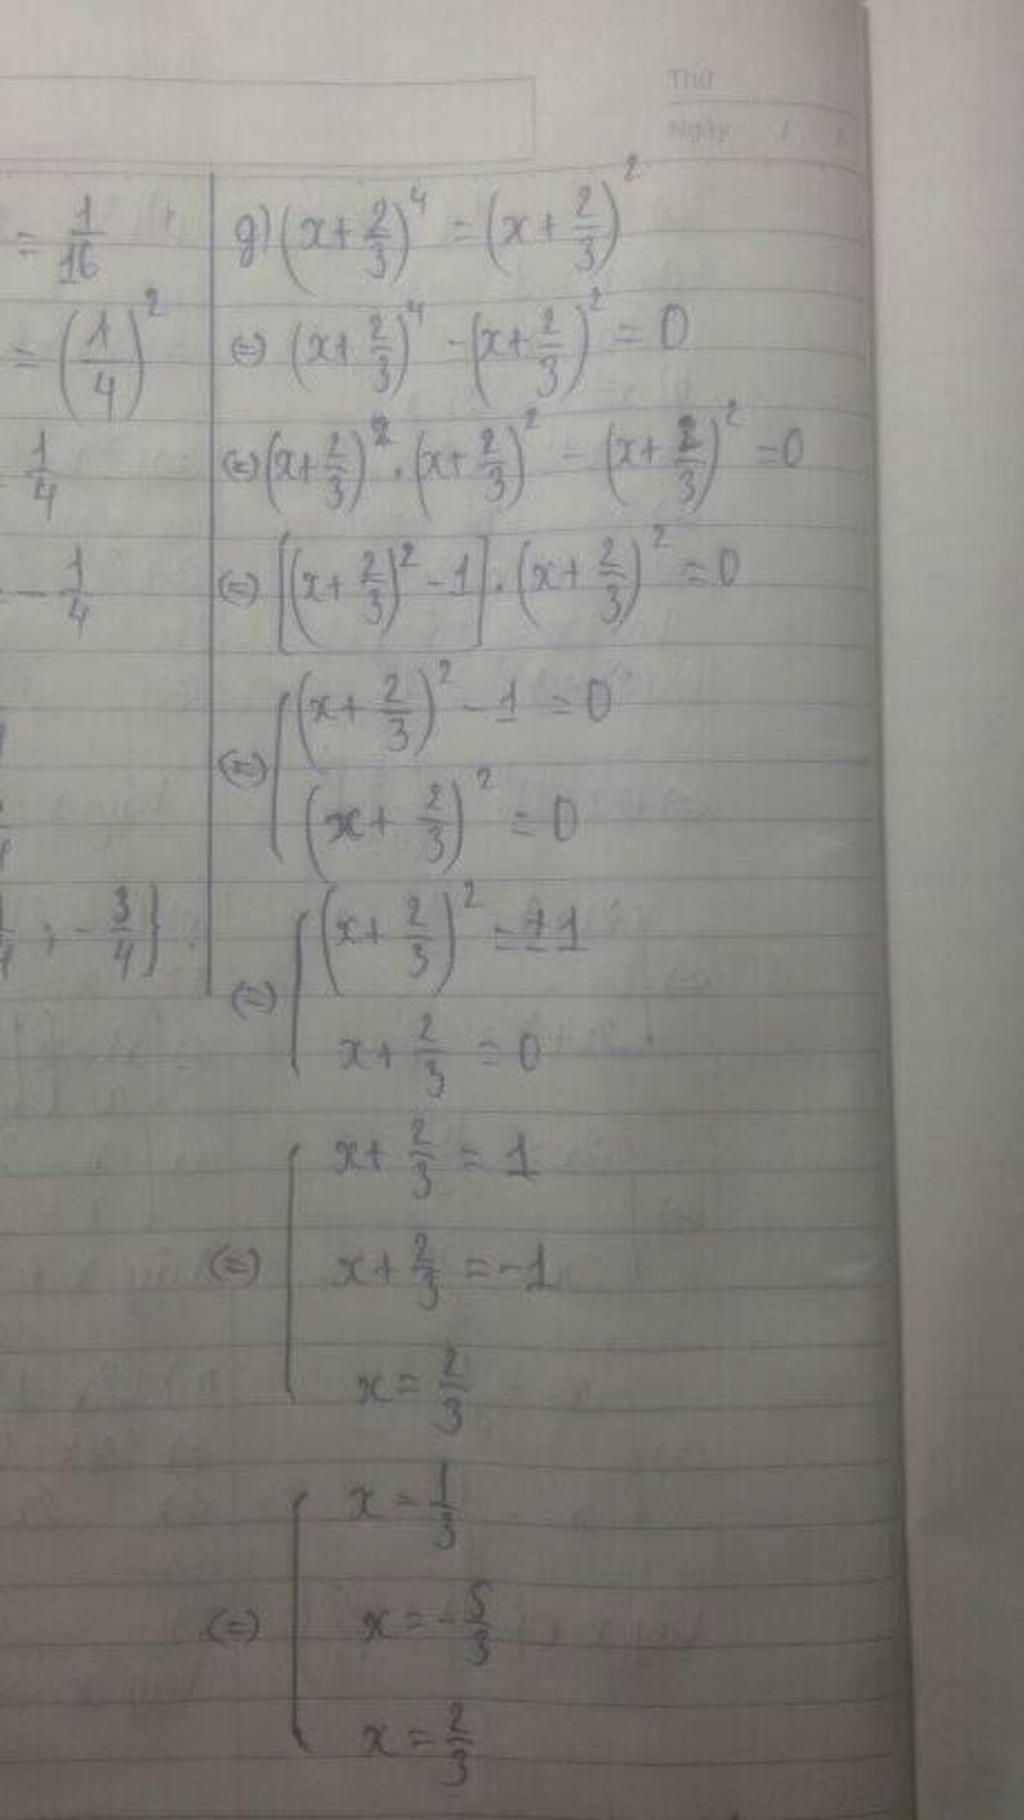 Thứ
Ngày / /
= 1/16
= (1/4)²
1/4
- 1/4
; - 3/4}
g) (x + 2/3)⁴ = (x + 2/3)²
(=) (x + 2/3)⁴ - (x + 2/3)² = 0
(=) (x + 2/3)² . (x + 2/3)² - (x + 2/3)² = 0
(=) [(x + 2/3)² - 1] . (x + 2/3)² = 0
(=) [ (x + 2/3)² - 1 = 0
(x + 2/3)² = 0
(=) [ (x + 2/3)² = ±1
x + 2/3 = 0
(=) [ x + 2/3 = 1
x + 2/3 = -1
x = 2/3
(=) [ x = 1/3
x = - 5/3
x = 2/3